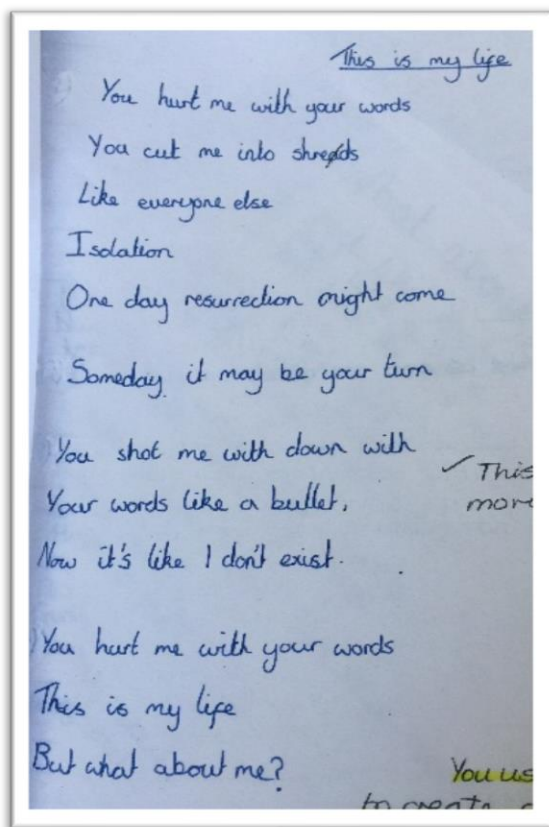 This is my life
You hurt me with your words
You cut me into shreds
Like everyone else
Isolation
One day resurrection might come
Someday it may be your turn
You shot me with down with
✓ This
Your words like a bullet,
more
Now it's like I don't exist.
You hurt me with your words
This is my life
But what about me?
You us
to create